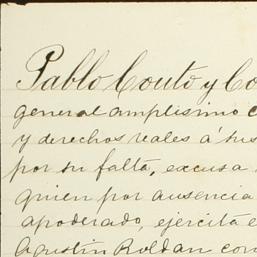 Pablo Couto y Co
general amplisimo c
y derechos reales á sus
por su falta, excusa
quien por ausencia
apoderado, ejercita e
Agustin Roldan con